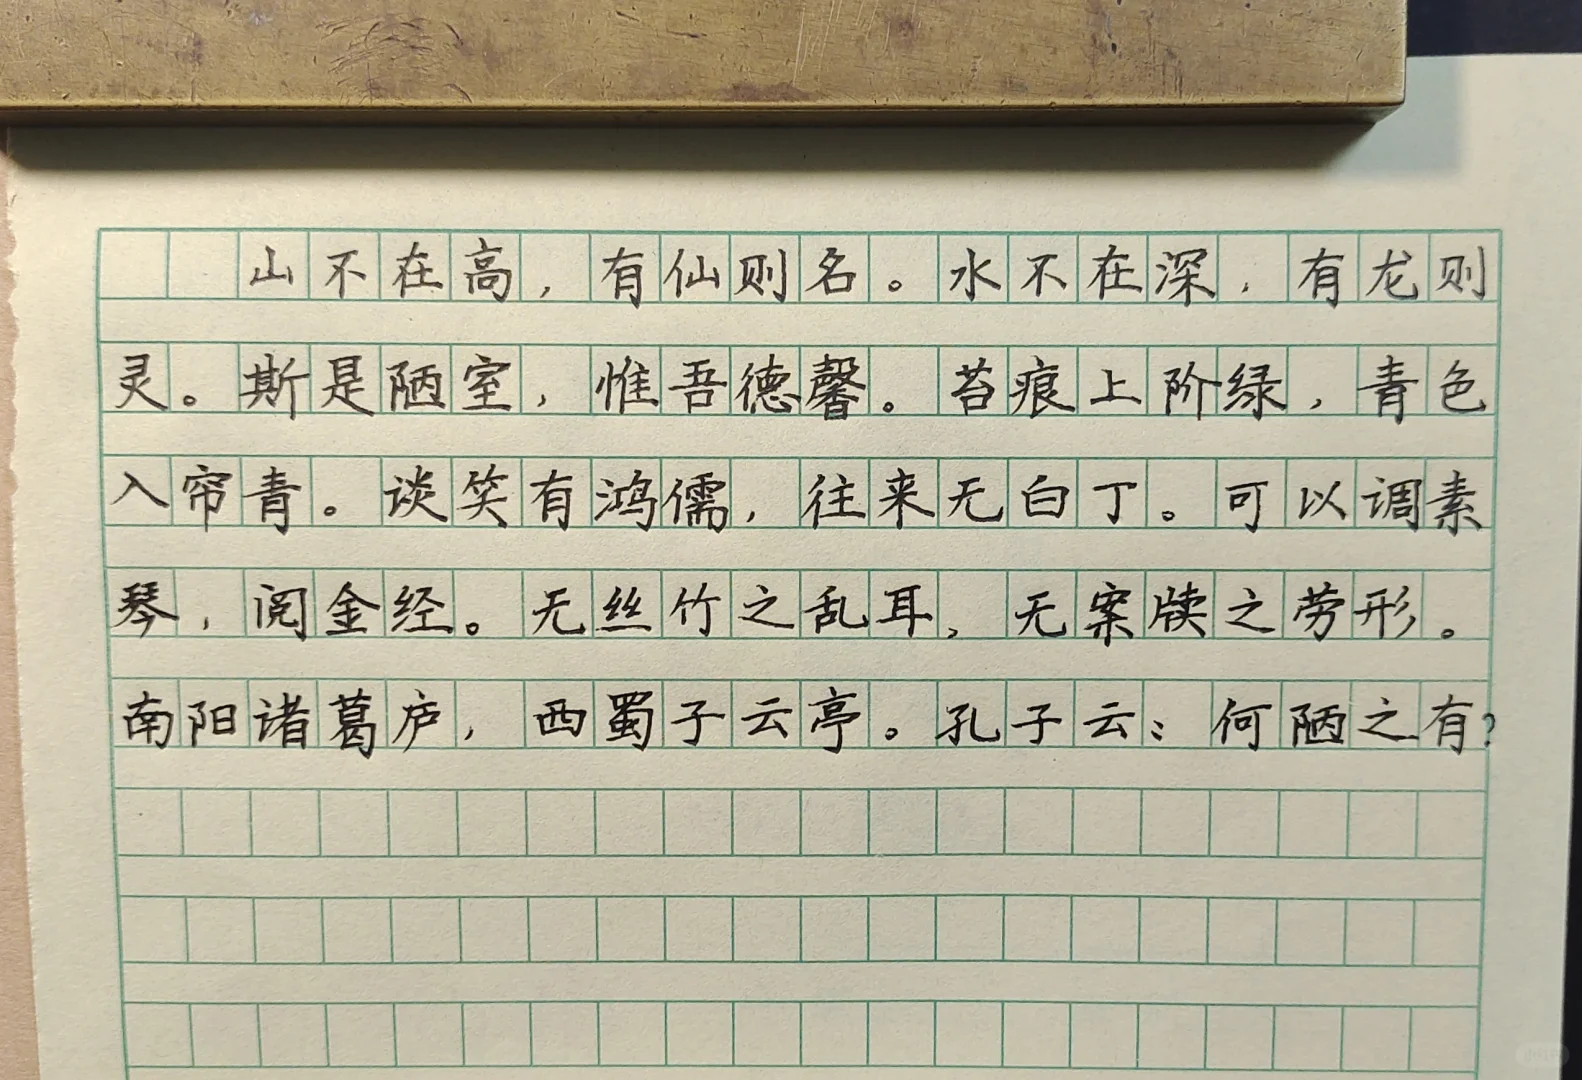 山不在高，有仙则名。水不在深，有龙则
灵。斯是陋室，惟吾德馨。苔痕上阶绿，青色
入帘青。谈笑有鸿儒，往来无白丁。可以调素
琴，阅金经。无丝竹之乱耳，无案牍之劳形。
南阳诸葛庐，西蜀子云亭。孔子云：何陋之有？